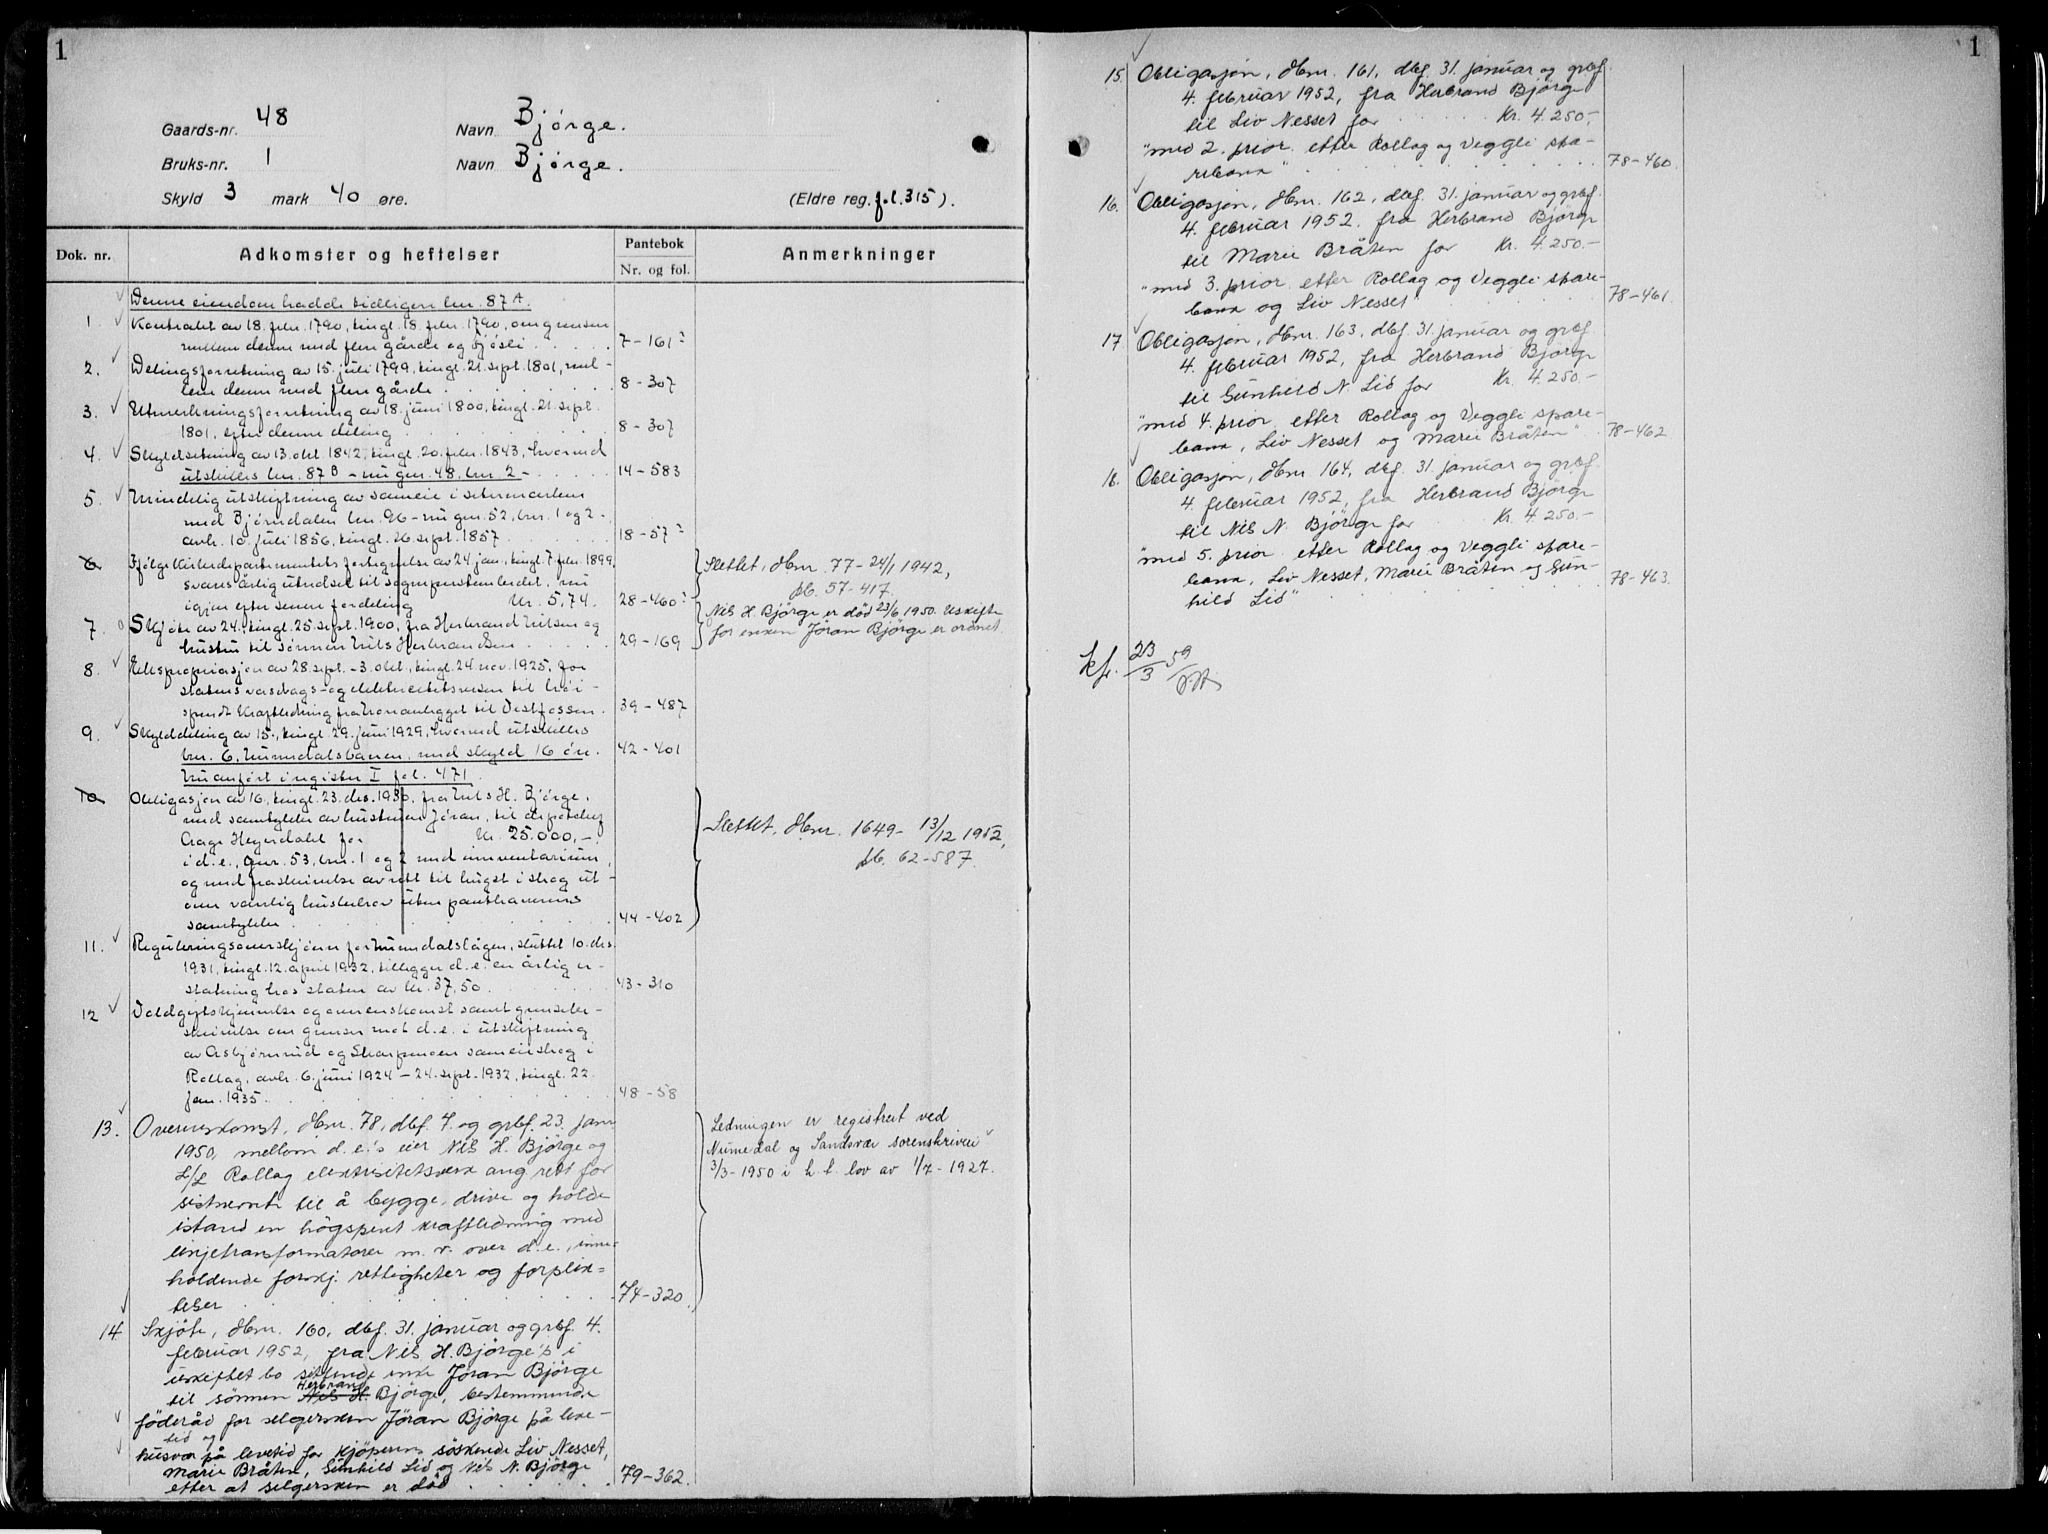 1
Gaards-nr. 48 Navn Bjørge.
Bruks-nr. 1 Navn Bjørge.
Skyld 3 mark 40 øre. (Eldre reg. fol. 315).
Dok. nr. Adkomster og heftelser Pantebok Nr. og fol. Anmerkninger
Denne eiendom hadde tidligere lnr. 87 A.
1. Kontrakt av 18. febr. 1790, tingl. 18. febr. 1790, om grensen
mellem denne med flere gårde og Fjøsli 7-161
2. Delingsforretning av 15. juli 1799, tingl. 21. sept. 1801, mel-
lem denne med flere gårde 8-307
3. Utmerkningsforretning av 18. juni 1800, tingl. 21. sept.
1801, efter denne deling 8-307
4. Skyldsetning av 13. okt. 1842, tingl. 20. febr. 1843, hvorved
utskilles lnr. 87 B - nu gnr. 48, bnr. 2 - 14-583
5. Mindelig utskiftning av sameie i setermarken
med Bjørndalen lnr. 96 - nu gnr. 52, bnr. 1 og 2 -
avh. 10. juli 1856, tingl. 26. sept. 1857 18-57
6 Ifølge Kirkedepartementets fortegnelse av 24. jan., tingl. 7. febr. 1899,
svares årlig utredsel til sogneprestembedet, nu
igjen efter senere fordeling Kr. 5,74. 28-460
Slettet, Dbnr. 77 - 24/1 1942,
pb. 57-417.
7. Skjøte av 24., tingl. 25. sept. 1900, fra Herbrand Nilsen og
hustru til sønnen Nils Herbrandsen 29-169
Nils H. Bjørge er død 23/6 1950. Uskifte
for enken Jöran Bjørge er ordnet.
8. Ekspropriasjon av 28. sept. - 3. okt., tingl. 24. nov. 1925, for
statens vasdrags- og elektricitetsvesen til høi-
spendt kraftledning fra Noreanlegget til Vestfossen. 39-487
9. Skylddeling av 15., tingl. 29. juni 1929, hvorved utskilles
bnr. 6, Numedalsbanen, med skyld 16 øre. 42-401
Nu anført i register I fol. 471.
10 Obligasjon av 16., tingl. 23. des. 1930, fra Nils H. Bjørge,
med samtykke av hustruen Jöran, til
Aage Heyerdahl for Kr. 25.000,-,
i d.e., gnr. 53, bnr. 1 og 2 med innventarium,
og med fraskrivelse av rett til hugst i skog ut-
over vanlig husbehov uten panthaverens
samtykke 44-402
Slettet, Dbnr. 1649 - 13/12 1952,
pb. 62-587.
11. Reguleringsoverskjønn for Numedalslågen, sluttet 10. des.
1931, tingl. 12. april 1932, tillegger d.e. en årlig er-
statning hos staten av kr. 37,50 43-310
12 Voldgiftskjennelse og overenskomst samt grensebe-
skrivelse om grensen mot d.e. i utskiftning
av Asbjørnrud og Skarpmoen sameieskog i
Rollag, avh. 6. juni 1924 - 24. sept. 1932, tingl. 22.
jan. 1935 48-58
13. Overenskomst, Dbnr. 78, dbf. 7. og grbf. 23. jan.
1950, mellom d.e.'s eier Nils H. Bjørge og
L/L Rollag elektrisitetsverk ang. rett for
sistnevnte til å bygge, drive og holde
istand en högspent kraftledning med
linjetransformatorer m.v. over d.e., inne-
holdende forskj. rettigheter og forplik-
telser 74-320
Ledningen er registrert ved
Numedal og Sandsvær sorenskriveri
3/3-1950 i h. t. lov av 1/7-1927.
14 Skjöte, Dbnr. 160, dbf. 31. januar og grbf. 4.
februar 1952, fra Nils H. Bjørge's i
uskiftet bo sittende enke Jöran Bjørge
til sönnen Nils H. Herbrand Bjørge, bestemmende
föderåd for selgersken Jöran Bjørge på leve-
tid og
husvær på levetid for kjöperens söskende Liv Nesset,
Marie Bråten, Gunhild Lid og Nils N. Bjørge
etter at selgersken er död 79-362.
1
15 Obligasjon, Dbnr. 161, dbf. 31. januar og grbf.
4. februar 1952, fra Herbrand Bjørge
til Liv Nesset for Kr. 4.250,-
"med 2. prior. etter Rollag og Veggli spa-
rebank" 78-460.
16. Obligasjon, Dbnr. 162, dbf. 31. januar og grbf.
4. februar 1952. fra Herbrand Bjørge
til Marie Bråten for Kr. 4.250.-
"med 3. prior. etter Rollag og Veggli spare-
bank og Liv Nesset" 78-461.
17 Obligasjon, Dbnr. 163, dbf. 31. januar og grbf.
4. februar 1952, fra Herbrand Bjørge
til Gunhild N. Lid for Kr. 4.250.-
"med 4. prior. etter Rollag og Veggli spare-
bank, Liv Nesset og Marie Bråten" 78-462
18. Obligasjon, Dbnr. 164, dbf. 31. januar og grbf.
4. februar 1952, fra Herbrand Bjørge
til Nils N. Bjørge for Kr. 4.250.-
"med 5. prior. etter Rollag og Veggli spare-
bank, Liv Nesset, Marie Bråten og Gun-
hild Lid" 78-463.
kf. 23/3 59